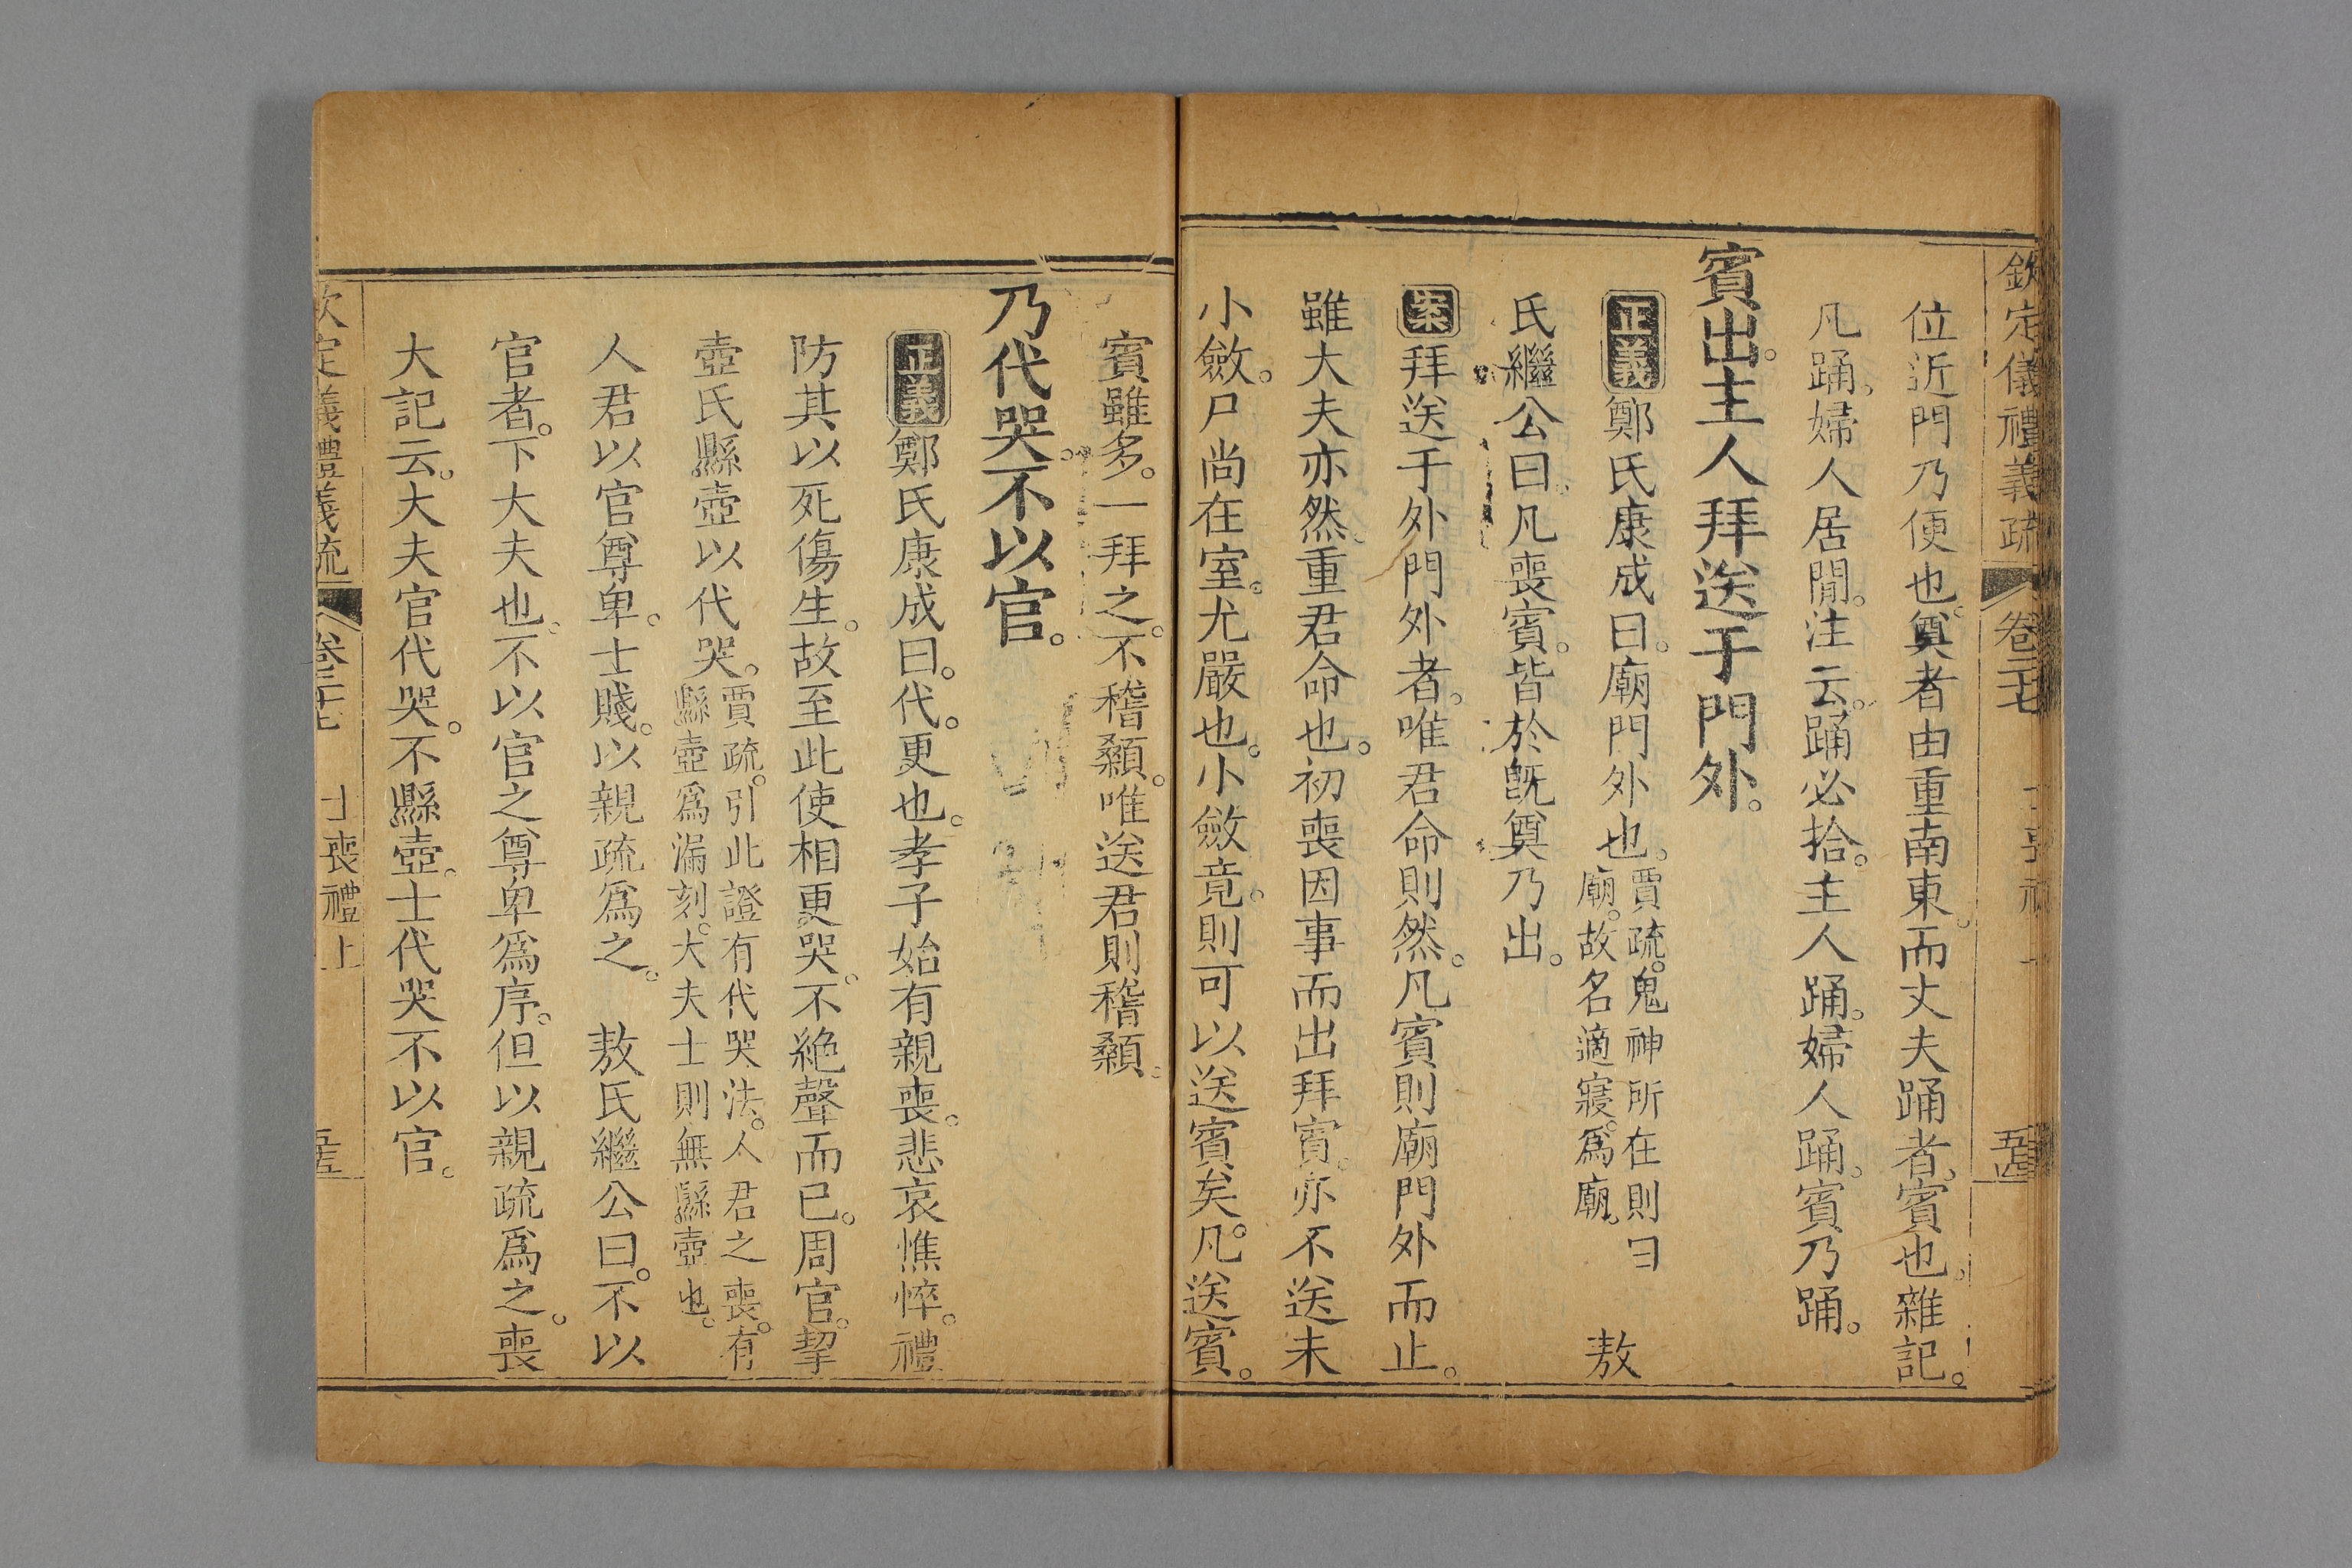 欽定儀禮義疏 卷二十七 士喪禮上 五十四
位近門乃便也。奠者由重南東。而丈夫踊者。賓也。雜記。
凡踊。婦人居閒。注云。踊必拾。主人踊。婦人踊。賓乃踊。
賓出。主人拜送于門外。
正義鄭氏康成曰。廟門外也。賈疏。鬼神所在則曰廟。故名適寢。爲廟。 敖
氏繼公曰。凡喪賓。皆於旣奠乃出。
案拜送于外門外者。唯君命則然。凡賓則廟門外而止。
雖大夫亦然。重君命也。初喪因事而出拜賓。亦不送未
小斂。尸尚在室。尤嚴也。小斂竟。則可以送賓矣。凡送賓。
賓雖多。一拜之。不稽顙。唯送君則稽顙。
乃代哭。不以官。
正義鄭氏康成曰。代。更也。孝子始有親喪。悲哀憔悴。禮
防其以死傷生。故至此使相更哭。不絶聲而已。周官。挈
壺氏縣壺以代哭。賈疏。引此證有代哭法。人君之喪。有縣壺爲漏刻。大夫士則無縣壺也。
人君以官尊卑。士賤。以親疏爲之。 敖氏繼公曰。不以
官者。下大夫也。不以官之尊卑爲序。但以親疏爲之。喪
大記云。大夫官代哭。不縣壺。士代哭不以官。
欽定儀禮義疏 卷二十七 士喪禮上 五十五